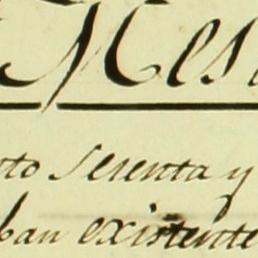 Mes
to Sesenta y
ban existente